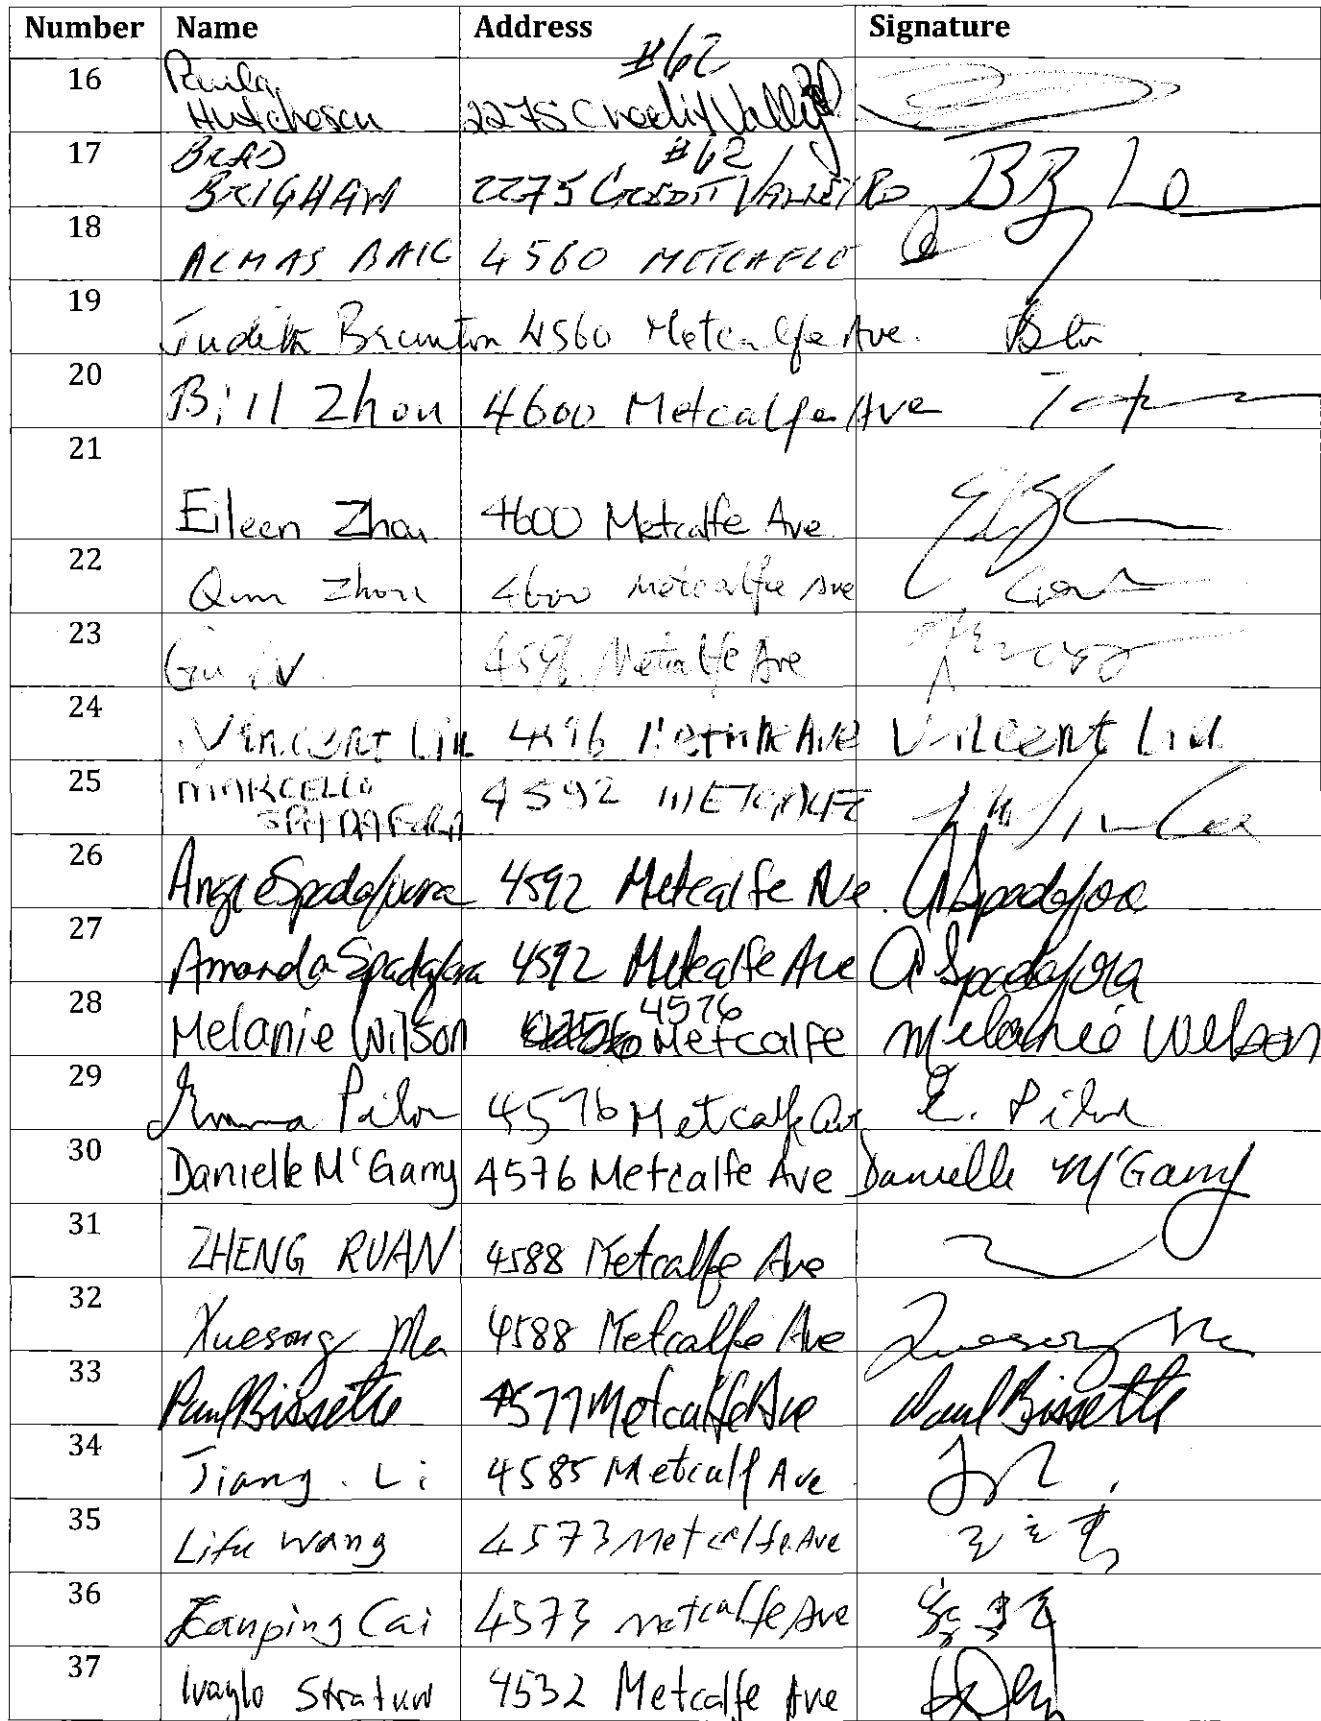 Number Name Address Signature
16 Paula #62
Hutcheson 2275 Credit Valley Rd
17 BRAD #62
BRIGHAM 2275 CREDIT VALLEY RD
18
ALMAS BAIG 4560 METCAFLE
19
Judith Brunton 4560 Metcalfe Ave.
20
Bill Zhou 4600 Metcalfe Ave
21
Eileen Zhou 4600 Metcalfe Ave
22
Zhou 4600 Metcalfe Ave
23
4596 Metcalfe Ave
24
Vincent Liu 4596 Metcalfe Ave Vincent Liu
25 MARCELLO
SPADAFORA 4592 METCALFE
26
Angie Spadafora 4592 Metcalfe Ave. A Spadafora
27
Amanda Spadafora 4592 Metcalfe Ave A Spadafora
28 4576
Melanie Wilson Metcalfe Melanie Wilson
29
Emma Pilon 4576 Metcalfe Ave E. Pilon
30
Danielle McGarry 4576 Metcalfe Ave Danielle McGarry
31
ZHENG RUAN 4588 Metcalfe Ave
32
Xuesong Ma 4588 Metcalfe Ave Xuesong Ma
33
Paul Bissette 4577 Metcalfe Ave Paul Bissette
34
Jiang. Li 4585 Metcalf Ave
35
Lifu Wang 4573 Metcalfe Ave
36
Cai 4573 metcalfe Ave
37
Ivaylo 4532 Metcalfe Ave